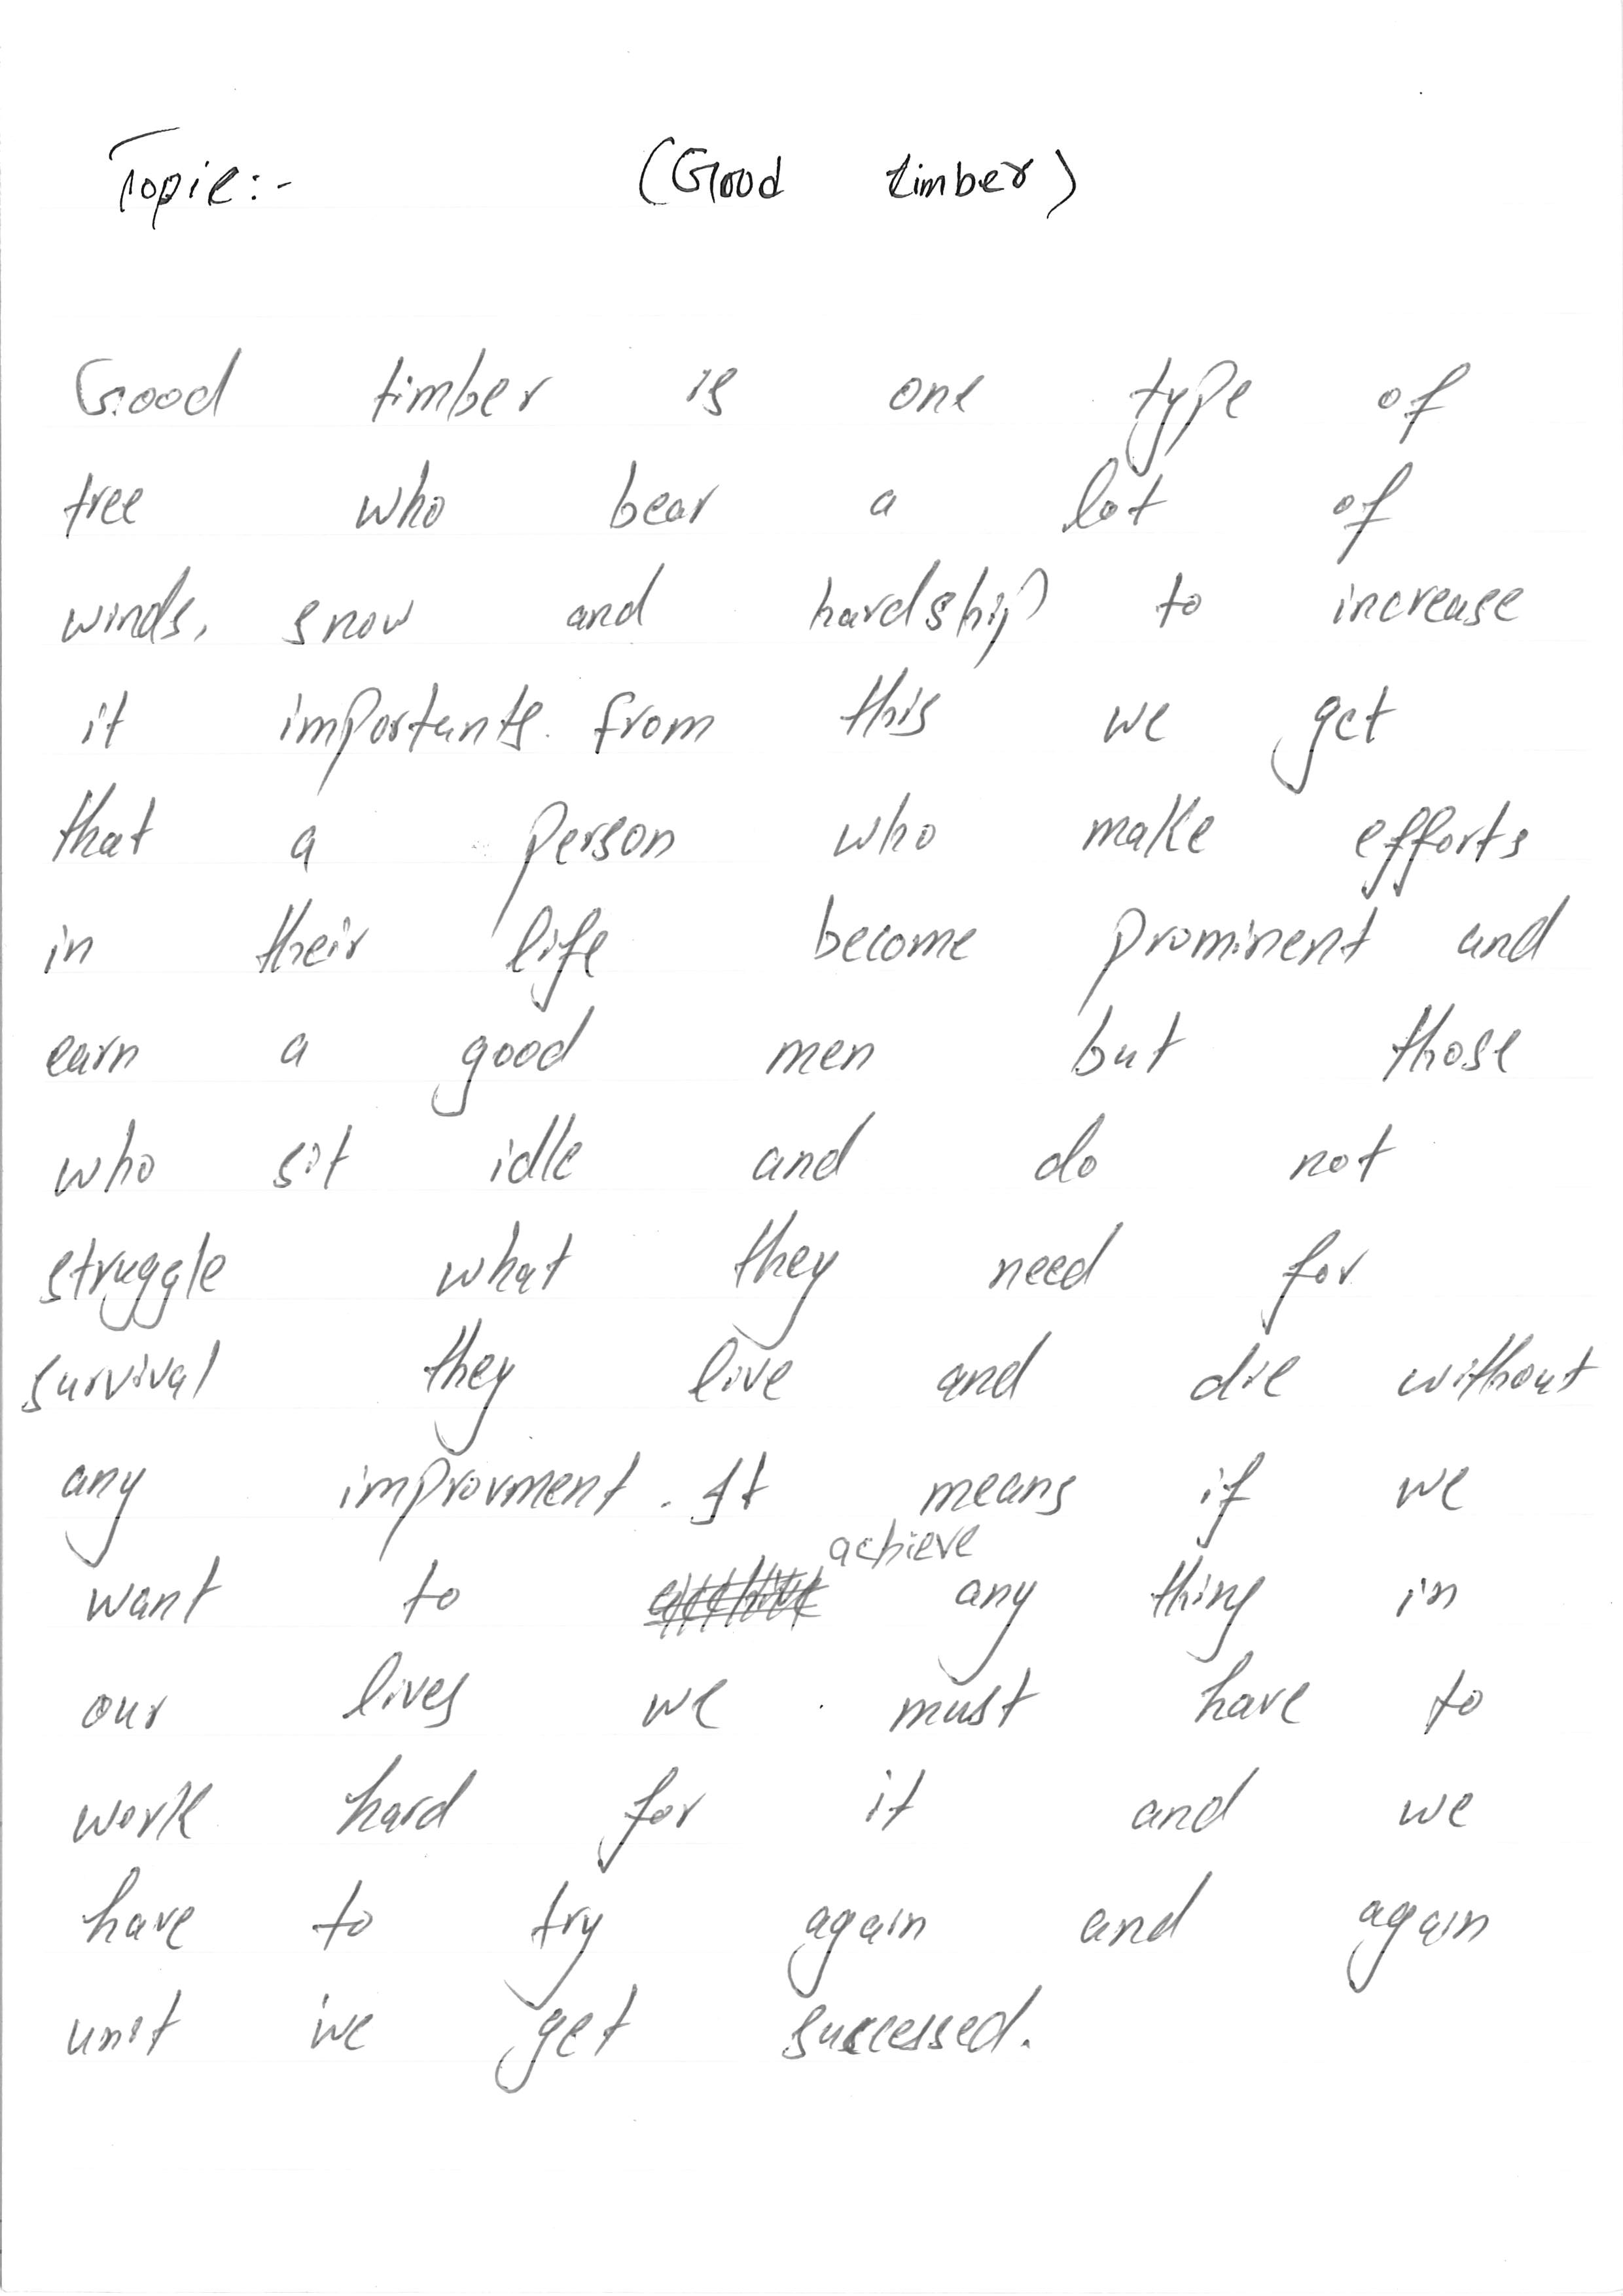 Topic:- (Good timber)
Good timber is one type of
tree who bear a lot of
winds, snow and hardship to increase
it importants. from this we get
that a person who make efforts
in their life become prominent and
earn a good men but those
who sit idle and do not
struggle what they need for
survival they live and die without
any improvment. It means if we
want to achieve any thing in
our lives we must have to
work hard for it and we
have to try again and again
unit we get successed.